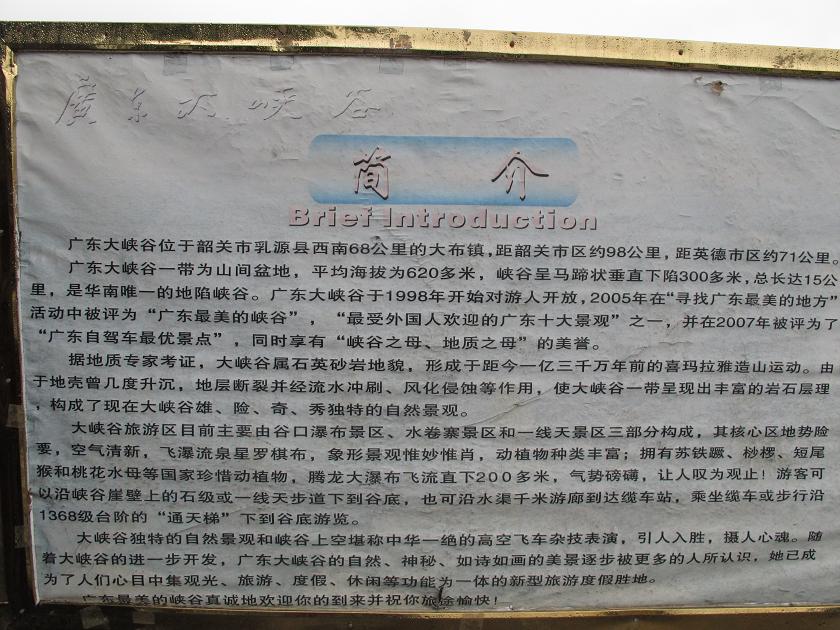 廣东大峡谷
简介
Brief Introduction
广东大峡谷位于韶关市乳源县西南68公里的大布镇，距韶关市区约98公里，距英德市区约71公里。
广东大峡谷一带为山间盆地，平均海拔为620多米，峡谷呈马蹄状垂直下陷300多米，总长达15公
里，是华南唯一的地陷峡谷。广东大峡谷于1998年开始对游人开放，2005年在“寻找广东最美的地方”
活动中被评为“广东最美的峡谷”，“最受外国人欢迎的广东十大景观”之一，并在2007年被评为了
“广东自驾车最优景点”，同时享有“峡谷之母、地质之母”的美誉。
据地质专家考证，大峡谷属石英砂岩地貌，形成于距今一亿三千万年前的喜玛拉雅造山运动。由
于地壳曾几度升沉，地层断裂并经流水冲刷、风化侵蚀等作用，使大峡谷一带呈现出丰富的岩石层理
，构成了现在大峡谷雄、险、奇、秀独特的自然景观。
大峡谷旅游区目前主要由谷口瀑布景区、水卷寨景区和一线天景区三部分构成，其核心区地势险
要，空气清新，飞瀑流泉星罗棋布，象形景观惟妙惟肖，动植物种类丰富；拥有苏铁蕨、桫椤、短尾
猴和桃花水母等国家珍惜动植物，腾龙大瀑布飞流直下200多米，气势磅礴，让人叹为观止！游客可
以沿峡谷崖壁上的石级或一线天步道下到谷底，也可沿水渠千米游廊到达缆车站，乘坐缆车或步行沿
1368级台阶的“通天梯”下到谷底游览。
大峡谷独特的自然景观和峡谷上空堪称中华一绝的高空飞车杂技表演，引人入胜，摄人心魂。随
着大峡谷的进一步开发，广东大峡谷的自然、神秘、如诗如画的美景逐步被更多的人所认识，她已成
为了人们心目中集观光、旅游、度假、休闲等功能为一体的新型旅游度假胜地。
广东最美的峡谷真诚地欢迎你的到来并祝你旅途愉快！